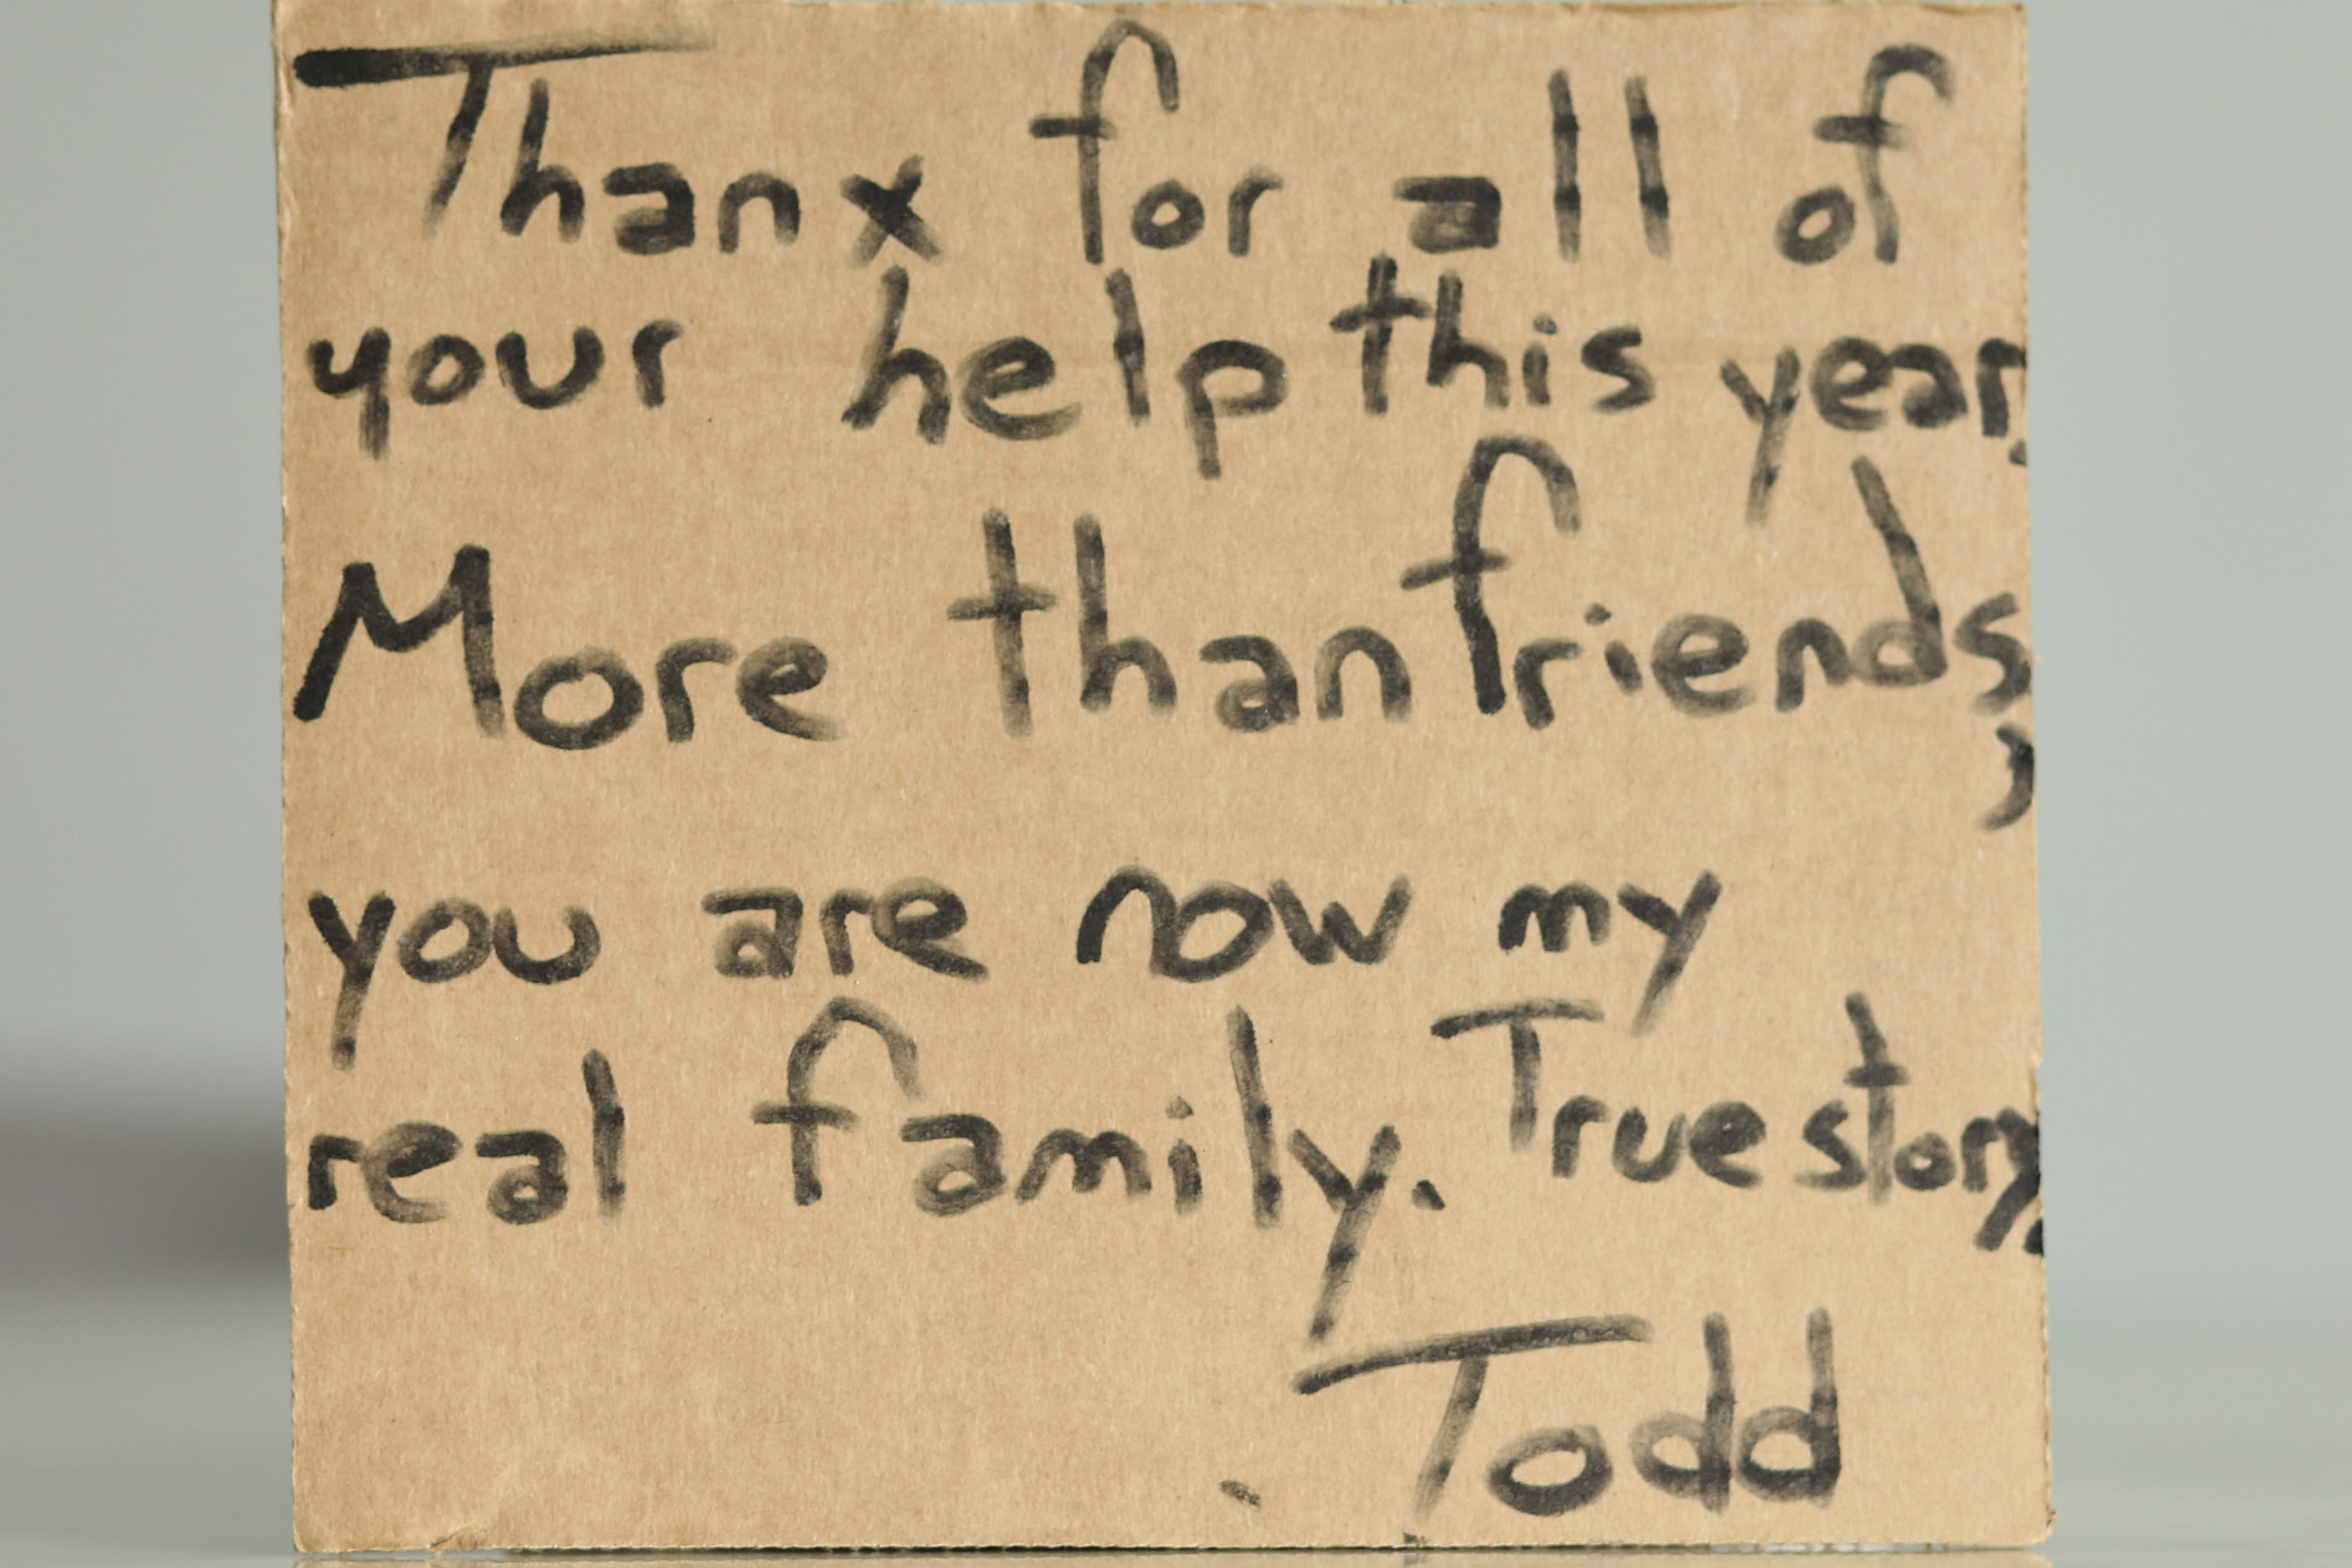 Thanx for all of
your help this year.
More than friends,
you are now my
real family. True story.
Todd